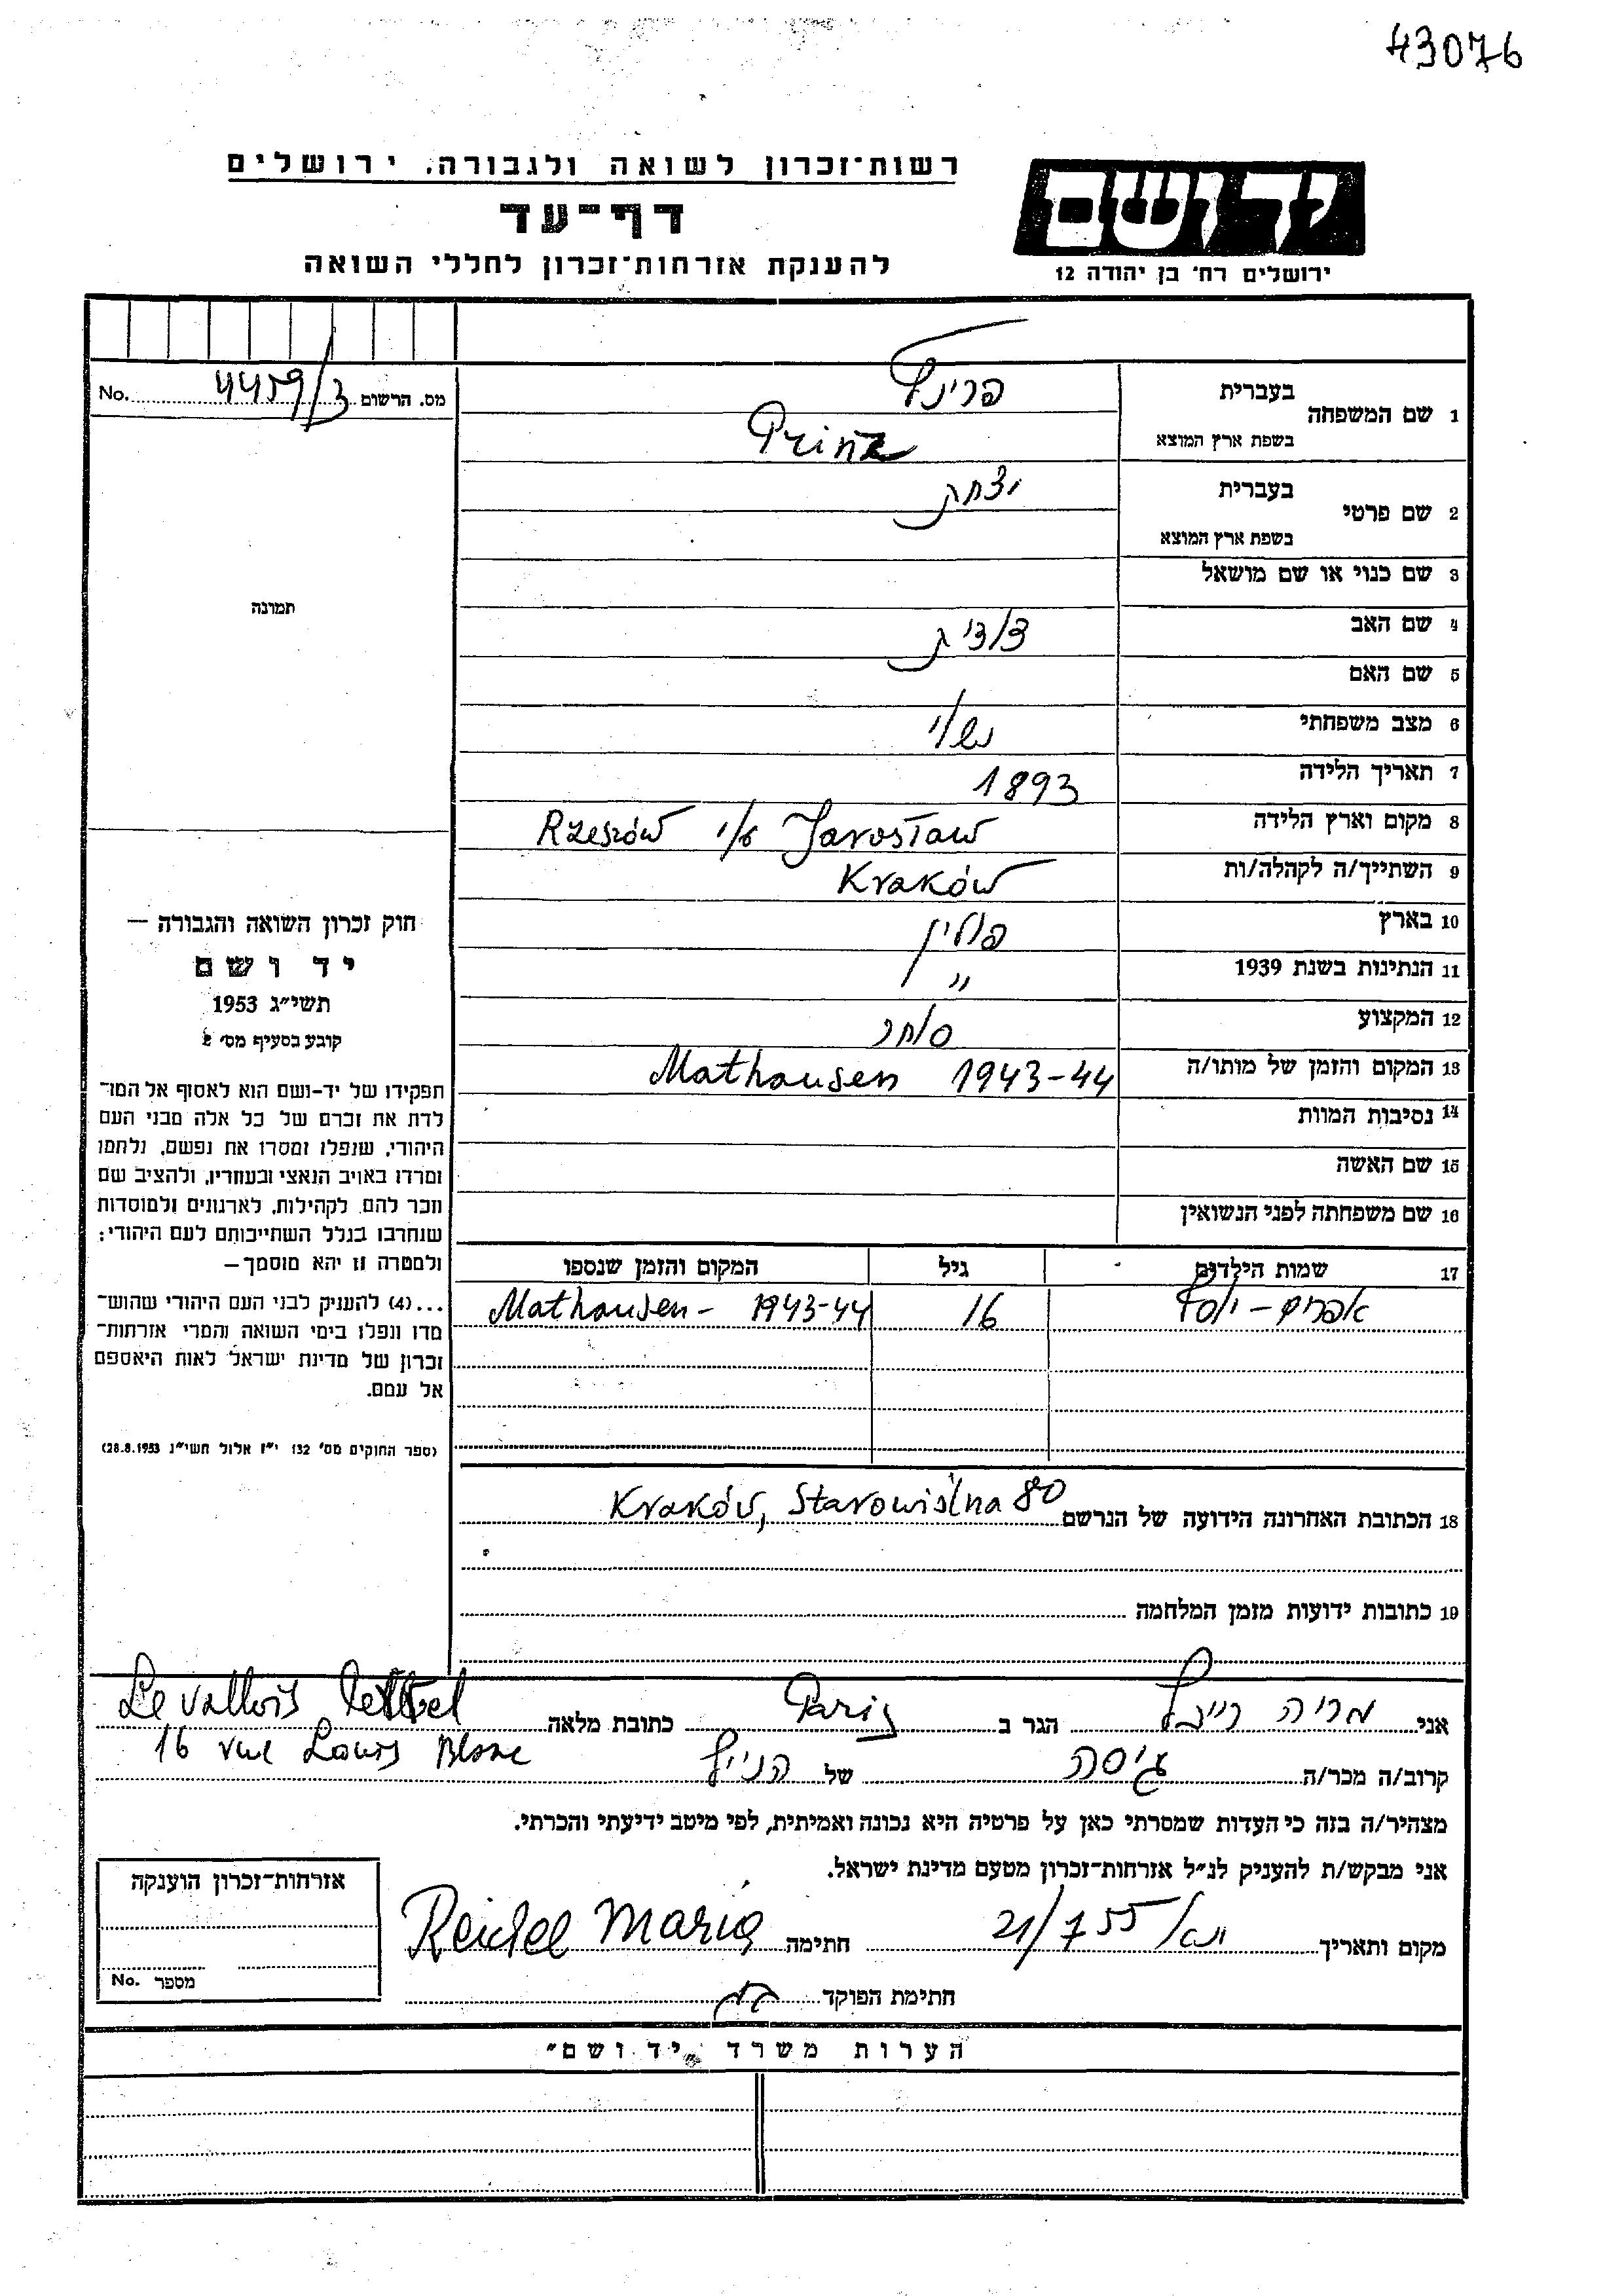 43076
יד ושם
ירושלים רח' בן יהודה 12
רשות־זכרון לשואה ולגבורה, ירושלים
דף־עד
להענקת אזרחות־זכרון לחללי השואה
מס. הרשום 4459/3 No.
תמונה
1 שם המשפחה בעברית
פרינץ
בשפת ארץ המוצא Prinz
2 שם פרטי בעברית יצחק
בשפת ארץ המוצא
3 שם כנוי או שם מושאל
4 שם האב
5 שם האם
6 מצב משפחתי נשוי
7 תאריך הלידה 1893
8 מקום וארץ הלידה Jarosław ע/י Rzeszów
9 השתייך/ה לקהלה/ות Kraków
10 בארץ פולין
11 הנתינות בשנת 1939 "
12 המקצוע סוחר
13 המקום והזמן של מותו/ה Mathausen 1943-44
14 נסיבות המוות
15 שם האשה
16 שם משפחתה לפני הנשואין
17 שמות הילדים גיל המקום והזמן שנספו
אפרים - יוסף 16 Mathausen - 1943-44
18 הכתובת האחרונה הידועה של הנרשם Kraków, Starowiślna 80
19 כתובות ידועות מזמן המלחמה
חוק זכרון השואה והגבורה —
יד ושם
תשי"ג 1953
קובע בסעיף מס' 2
תפקידו של יד-ושם הוא לאסוף אל המו־
לדת את זכרם של כל אלה מבני העם
היהודי, שנפלו ומסרו את נפשם, נלחמו
ומרדו באויב הנאצי ובעוזריו, ולהציב שם
וזכר להם, לקהילות, לארגונים ולמוסדות
שנחרבו בגלל השתייכותם לעם היהודי;
ולמטרה זו יהא מוסמך —
...(4) להעניק לבני העם היהודי שהוש־
מדו ונפלו בימי השואה והמרי אזרחות־
זכרון של מדינת ישראל לאות היאספם
אל עמם.
(ספר החוקים מס' 132 י"ז אלול תשי"ג 28.8.1953)
אני מריה הגר ב Paris כתובת מלאה Levallois
16 rue Louis Blanc
קרוב/ה מכר/ה גיסה של הנ״ל
מצהיר/ה בזה כי העדות שמסרתי כאן על פרטיה היא נכונה ואמיתית, לפי מיטב ידיעתי והכרתי.
אני מבקש/ת להעניק לנ"ל אזרחות־זכרון מטעם מדינת ישראל.
מקום ותאריך 21/7 55 חתימה Reidel Maria
חתימת הפוקד
אזרחות־זכרון הוענקה
מספר No.
הערות משרד "יד ושם"